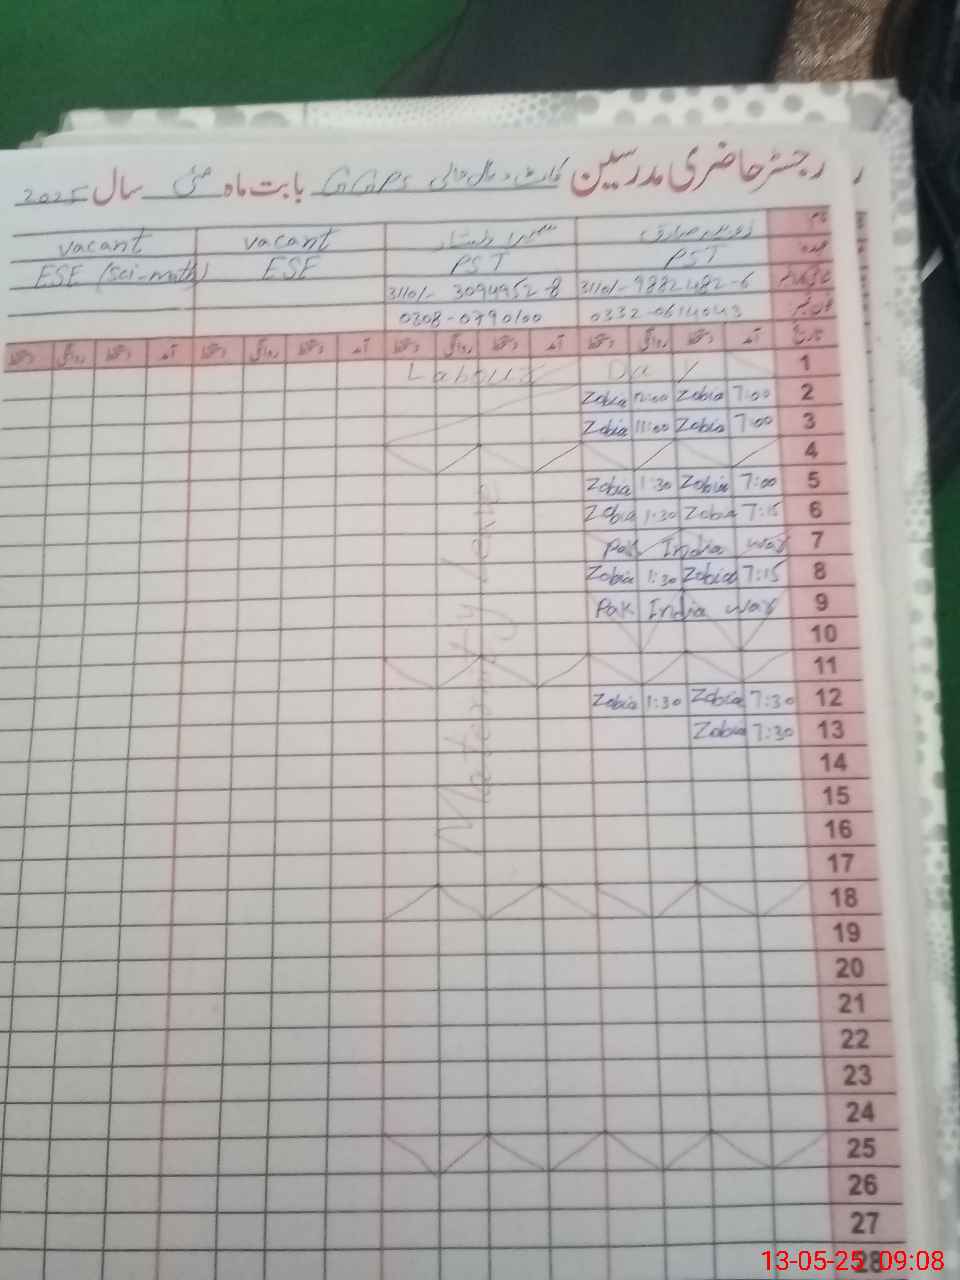 رجسٹر حاضری مدرسین GGPS بابت ماہ مئی سال 2025
نام vacant vacant
عہدہ PST PST ESE ESE (Sci-math)
31101-9882482-6 31101-3094952-8
0332-0614043 0308-0790100
تاریخ آمد دستخط روانگی دستخط آمد دستخط روانگی دستخط آمد دستخط روانگی دستخط آمد دستخط روانگی دستخط
1 Labour Day
2 7:00 Zobia 12:00 Zobia
3 7:00 Zobia 11:00 Zobia
4
5 7:00 Zobia 1:30 Zobia
6 7:15 Zobia 1:30 Zobia
7 Pak India war
8 7:15 Zobia 1:30 Zobia
9 Pak India war
10
11
12 7:30 Zobia 1:30 Zobia
13 7:30 Zobia
14
15
16
17
18
19
20
21
22
23
24
25
26
27
28
Maternity leave
13-05-25 09:08